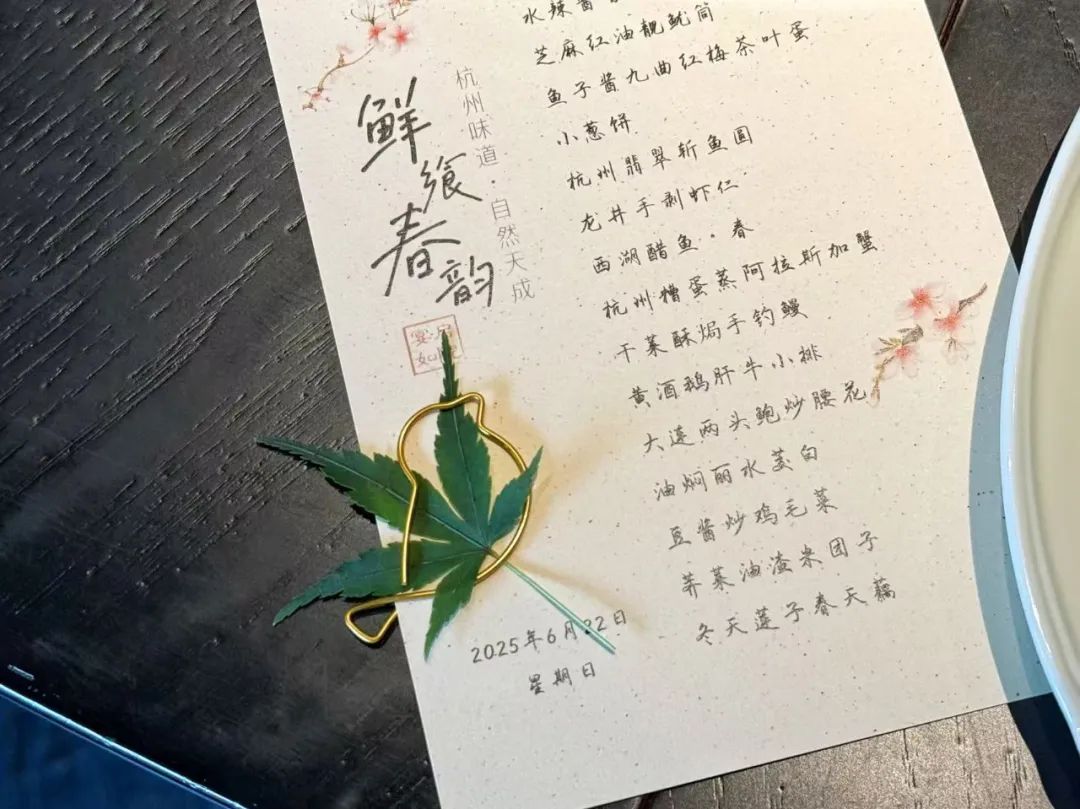 水辣酱
芝麻红油靓鱿筒
鱼子酱九曲红梅茶叶蛋
小葱饼
杭州翡翠斩鱼圆
龙井手剥虾仁
西湖醋鱼·春
杭州糟蛋蒸阿拉斯加蟹
干菜酥焗手钓鳗
黄酒鹅肝牛小排
大连两头鲍炒腰花
油焖丽水茭白
豆酱炒鸡毛菜
荠菜油渣米团子
冬天莲子春天藕
杭州味道·自然天成
鲜飨春韵
2025年6月22日
星期日